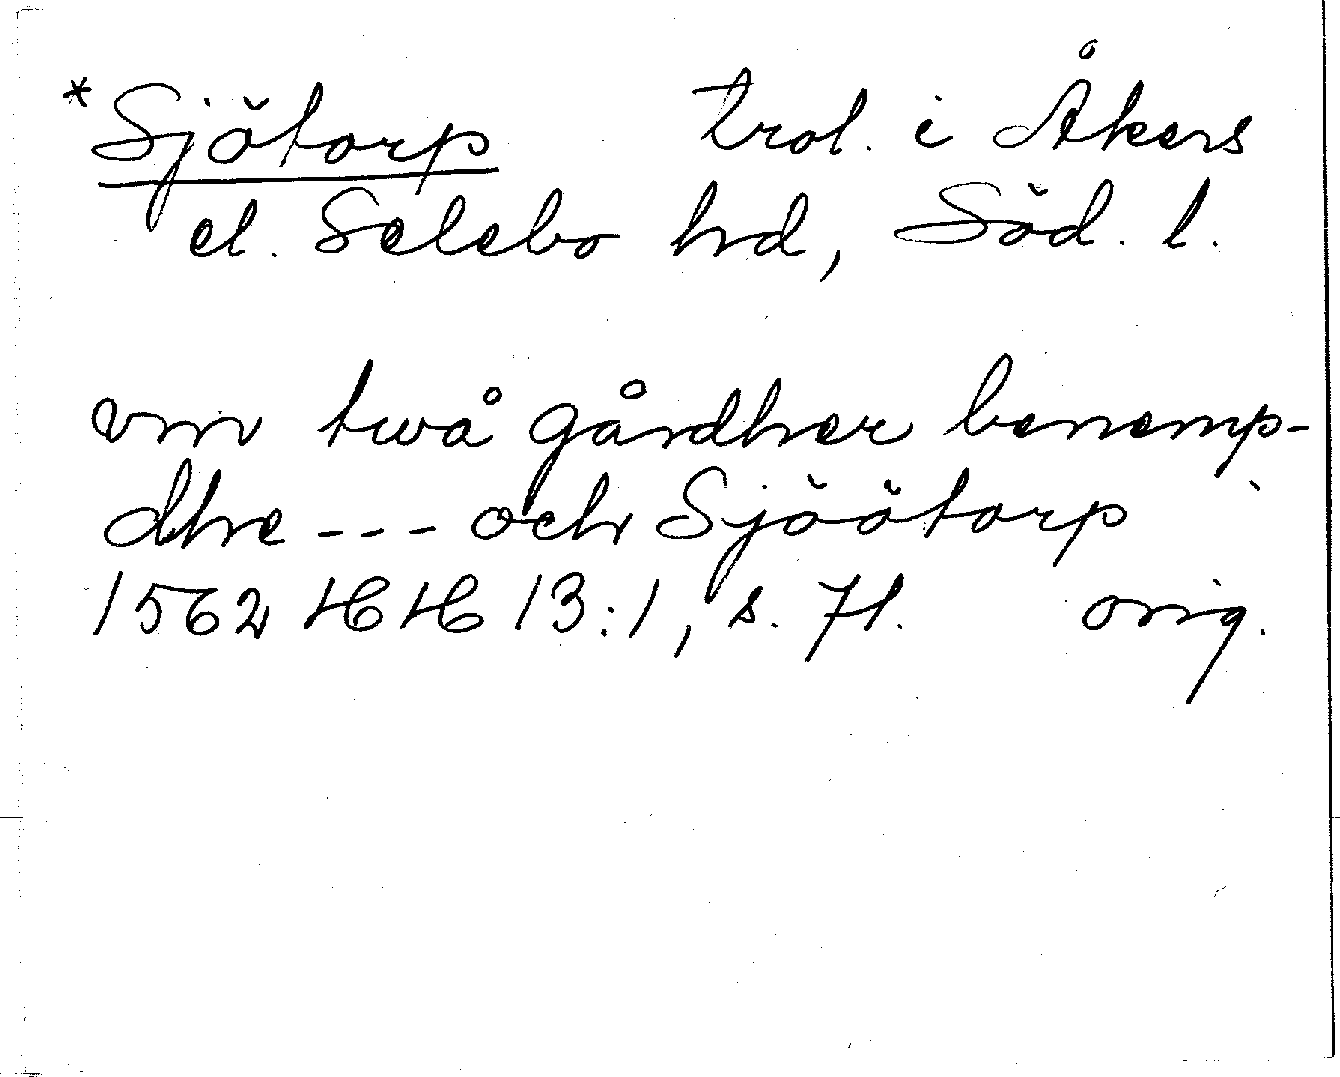 *Sjötorp trol. i Åkers
el. Selebo hd, Söd. l.
vm twå gårdher benemp-
dhe --- och Sjöötorp
1562 HH 13:1, s. 71. orig.